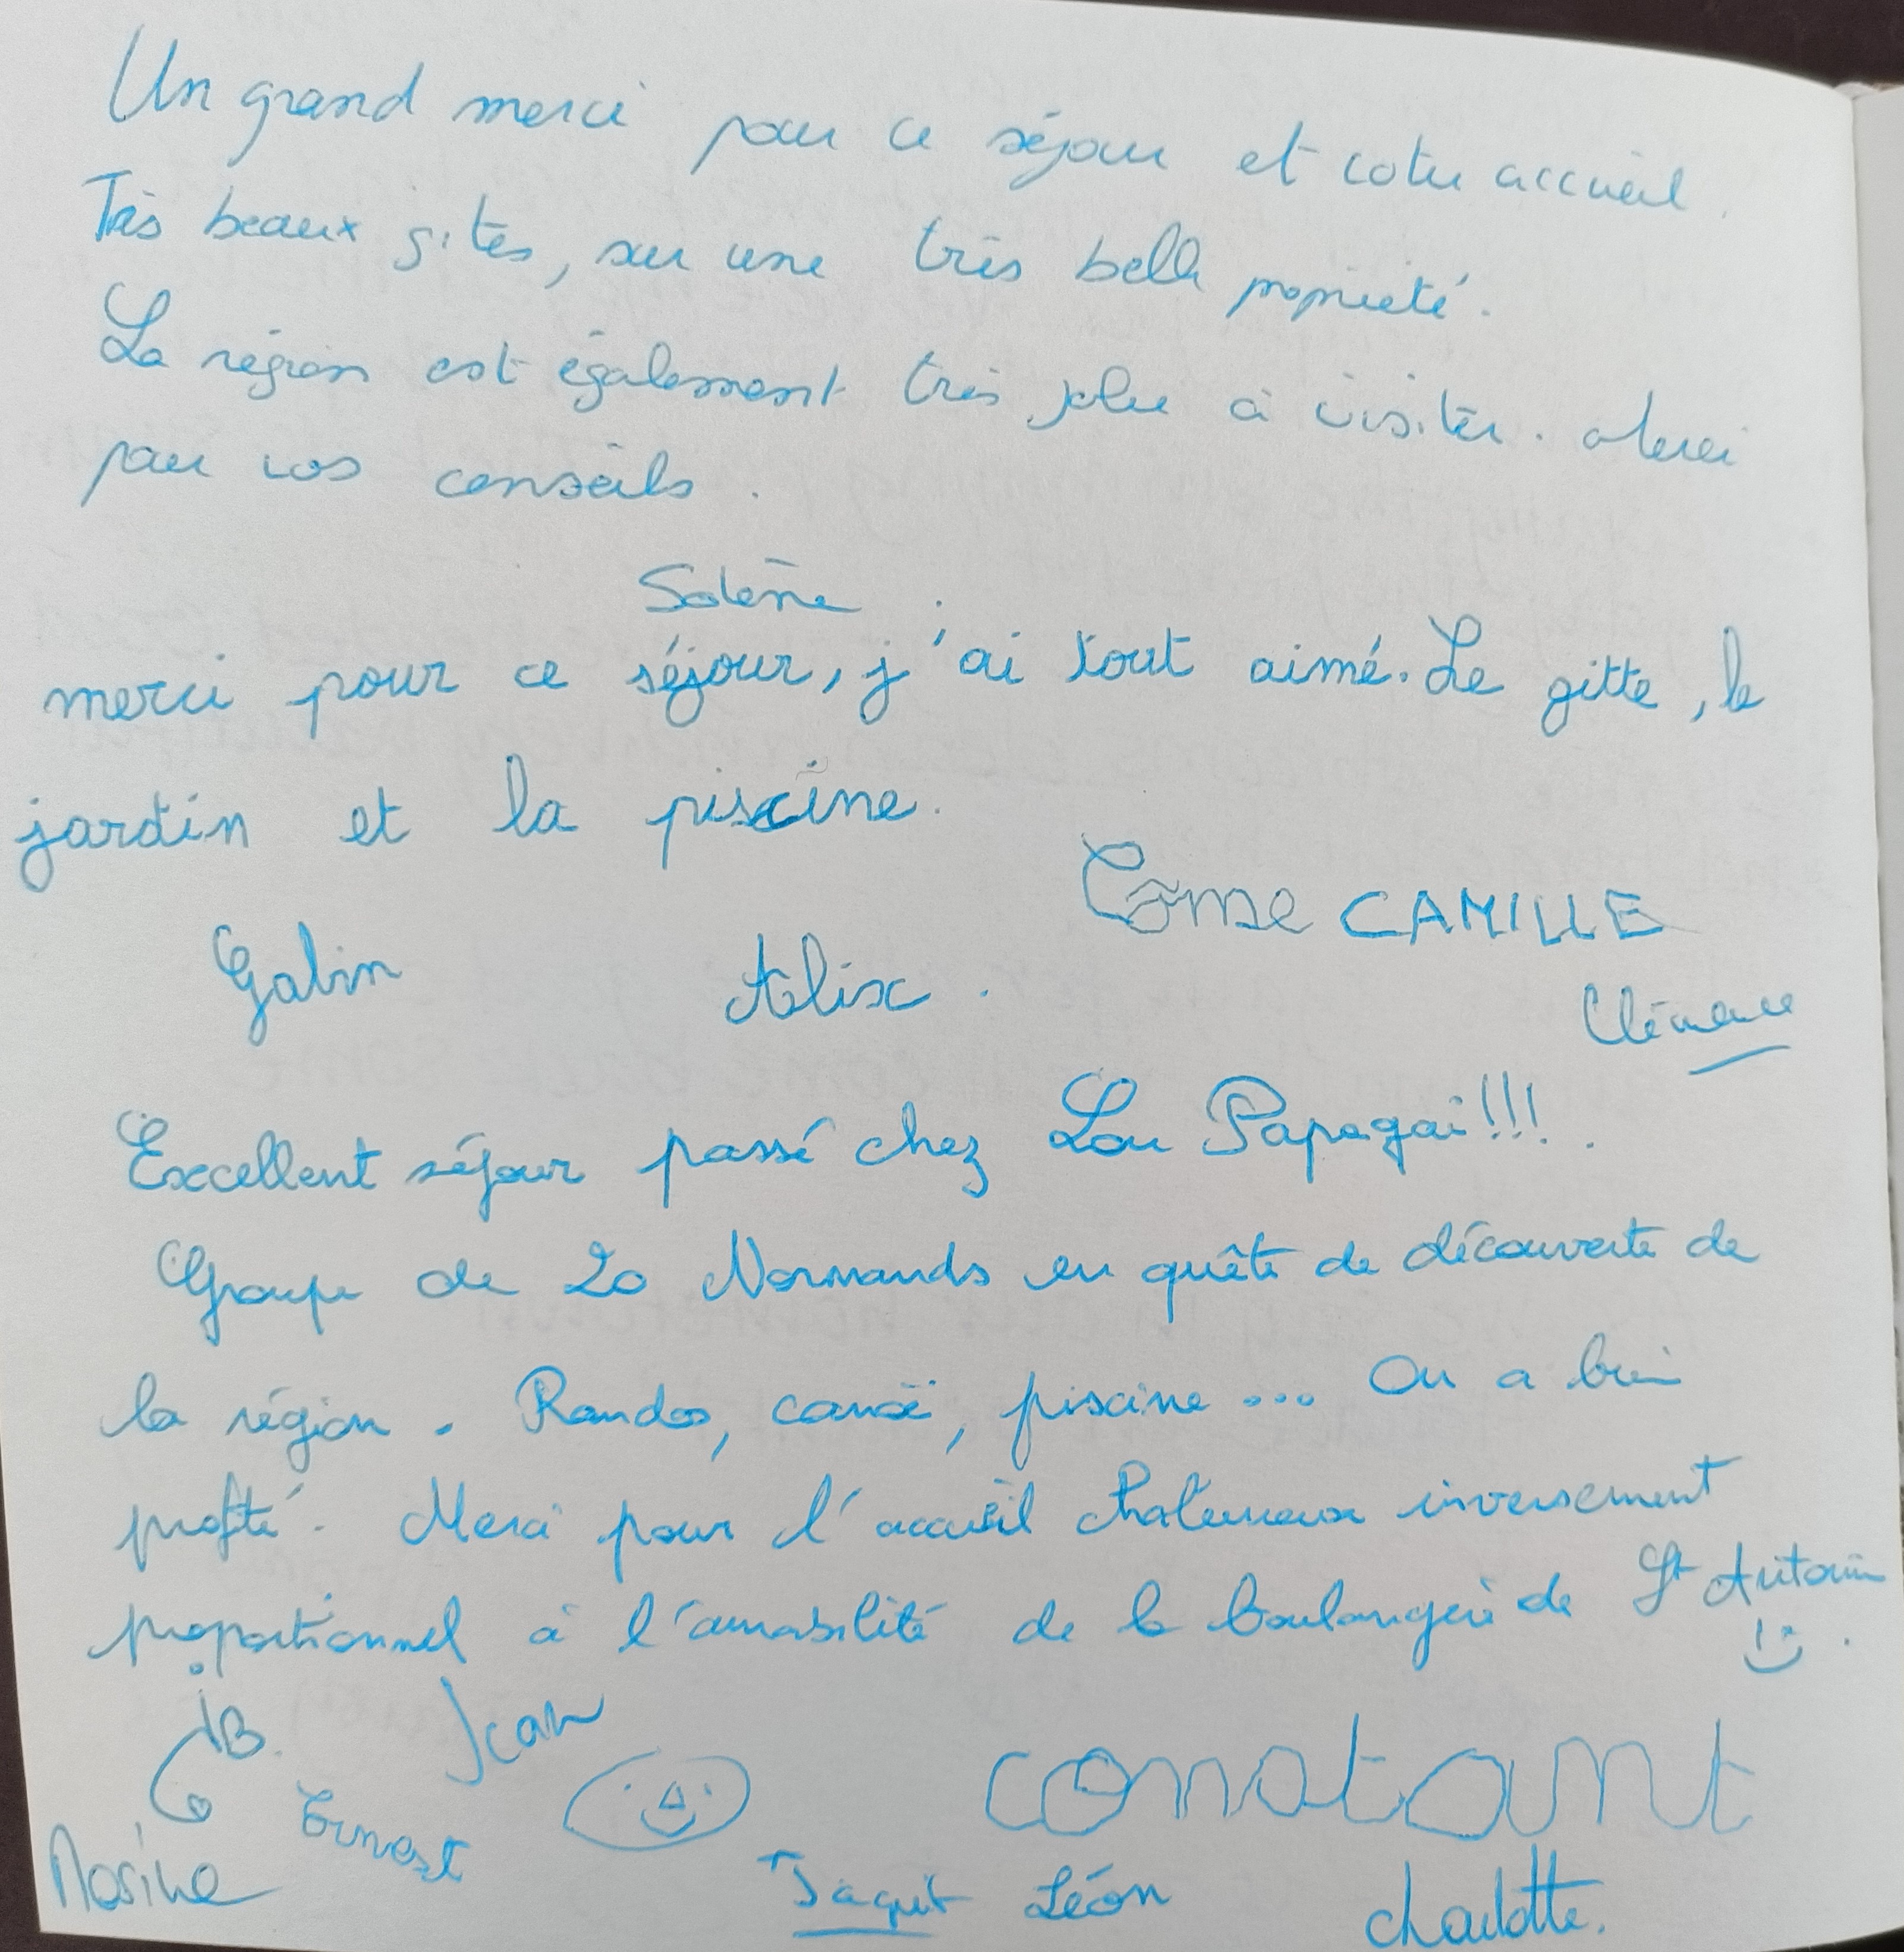 Un grand merci pour ce séjour et votre accueil.
Très beaux gîtes, sur une très belle propriété.
La région est également très jolie à visiter. Merci
pour vos conseils.
Solène
merci pour ce séjour, j'ai tout aimé. Le gitte, le
jardin et la piscine.
Côme CAMILLE
Gabin Alix.
Clémence
Excellent séjour passé chez Lou Papagai!!!.
Groupe de 20 Normands en quête de découverte de
la région. Randos, canoë, piscine... On a bien
profité. Merci pour l'accueil chaleureux inversement
proportionnel à l'amabilité de la boulangère de St Antonin
JB Jean
constant
Ernest
Léon
charlotte.